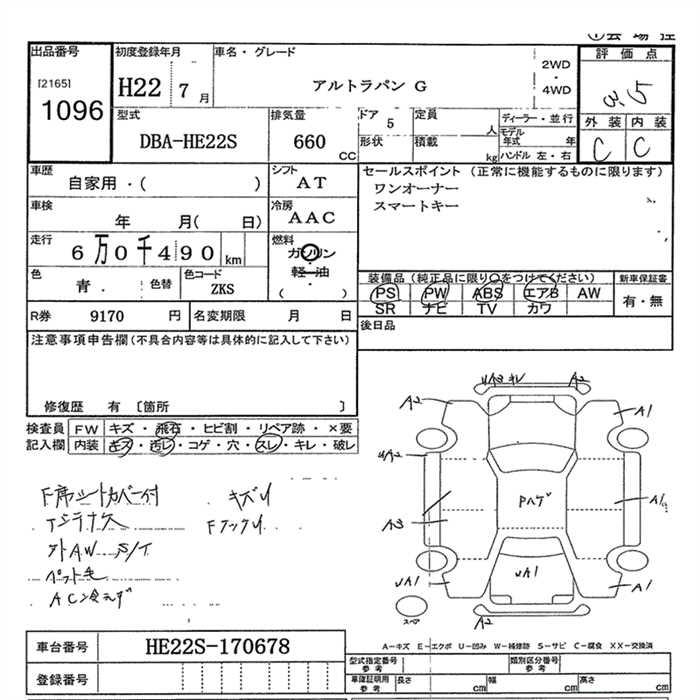 出品番号
初度登録年月
車名・グレード
評価点
[2165]
1096
H22 7月
アルトラパン G
2WD
・
4WD
3.5
型式
DBA-HE22S
排気量
660 CC
ドア 5
定員 人
ディーラー・並行
形状
積載 kg
モデル年式 年
ハンドル 左・右
外装 内装
C C
車歴
自家用・( )
シフト
AT
セールスポイント (正常に機能するものに限ります)
ワンオーナー
スマートキー
車検
年 月( 日)
冷房
AAC
走行
6万0千490 km
燃料
ガソリン
・
軽油
・
( )
色
青・ 色替
色コード
ZKS
装備品 (純正品に限り○をつけてください)
新車保証書
PS PW ABS エアB AW
有・無
SR ナビ TV カワ
R券 9170 円
名変期限 月 日
後日品
注意事項申告欄(不具合内容等は具体的に記入して下さい)
修復歴 有 〔箇所 〕
検査員 FW キズ・飛石・ヒビ割・リペア跡・×要
記入欄 内装 キズ・汚レ・コゲ・穴・スレ・キレ・破レ
F席シートカバー付 キズリ
外AW S/T
ペット毛
UA3 キレ A2
A2 A1
UA2
Pハゲ
A1
A3
UA1 UA1 A1
スペア A2
車台番号 HE22S-170678
登録番号
A－キズ E－エクボ U－凹み W－補修跡 S－サビ C－腐食 XX－交換済
型式指定番号 参考
類別区分番号 参考
車庫証明用 参考
長さ cm 幅 cm 高さ cm